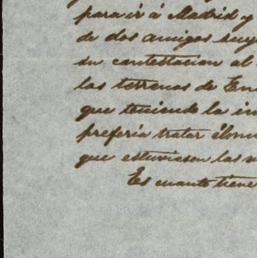 para ir á Madrid y
de dos amigos cuy
su contestacion al
las terrenos de En
que teniendo la in
preferia tratar él
que estuviesen las
Es cuanto tiene